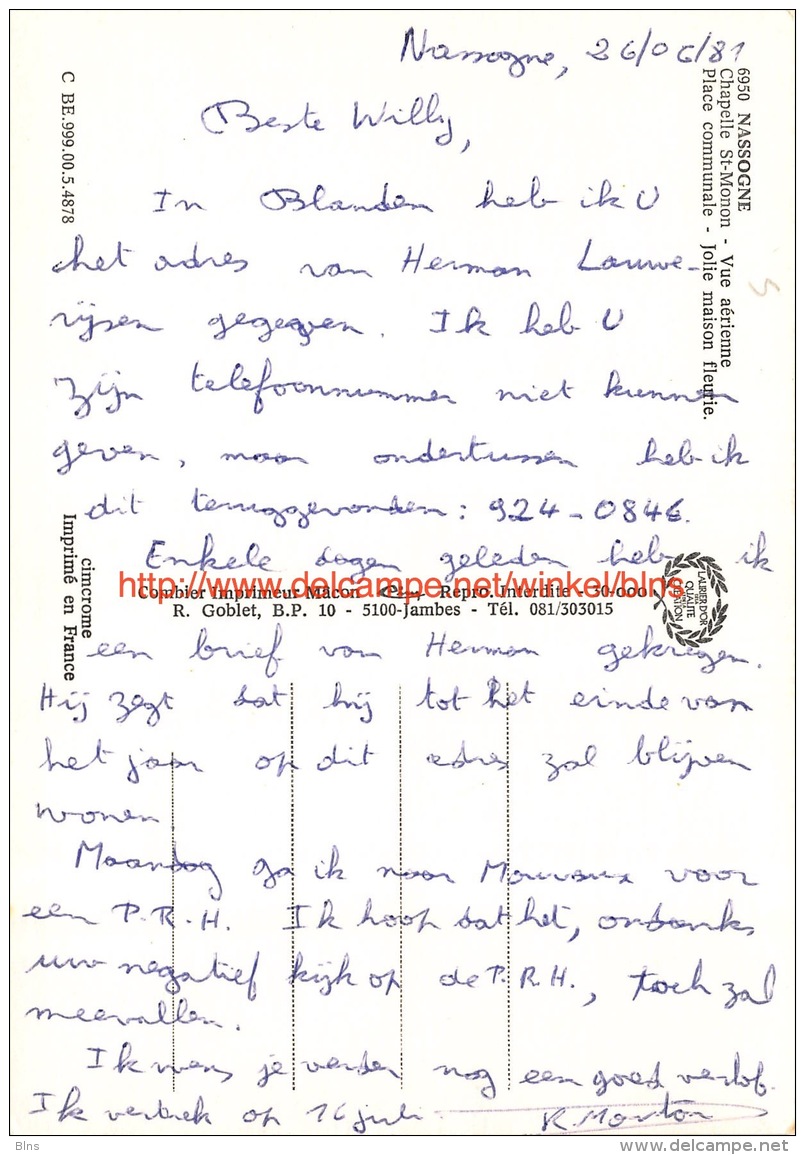 Nassogne, 26/06/81
Beste Willy,
In Blanden heb ik U
het adres van Herman Lauwe-
rijsen gegeven. Ik heb U
zijn telefoonnummer niet kunnen
geven, maar ondertussen heb ik
dit teruggevonden: 924-0846.
Enkele dagen geleden heb ik
een brief van Herman gekregen.
Hij zegt dat hij tot het einde van
het jaar op dit adres zal blijven
wonen.
Maandag ga ik naar Mouvaux voor
een P.R.H. Ik hoop dat het, ondanks
uw negatief kijk op de P.R.H., toch zal
meevallen.
Ik wens je verder nog een goed verlof.
Ik vertrek op 16 juli.
6950 NASSOGNE
Chapelle St-Monon - Vue aérienne
Place communale - Jolie maison fleurie.
C BE.999.00.5.4878
cimcrome
Imprimé en France
http://www.delcampe.net/winkel/blns
Combier Imprimeur Mâcon Repro. Interdite - 30-000
R. Goblet, B.P. 10 - 5100-Jambes - Tél. 081/303015
LAURIER D'OR
QUALITÉ
Blns
www.delcampe.net